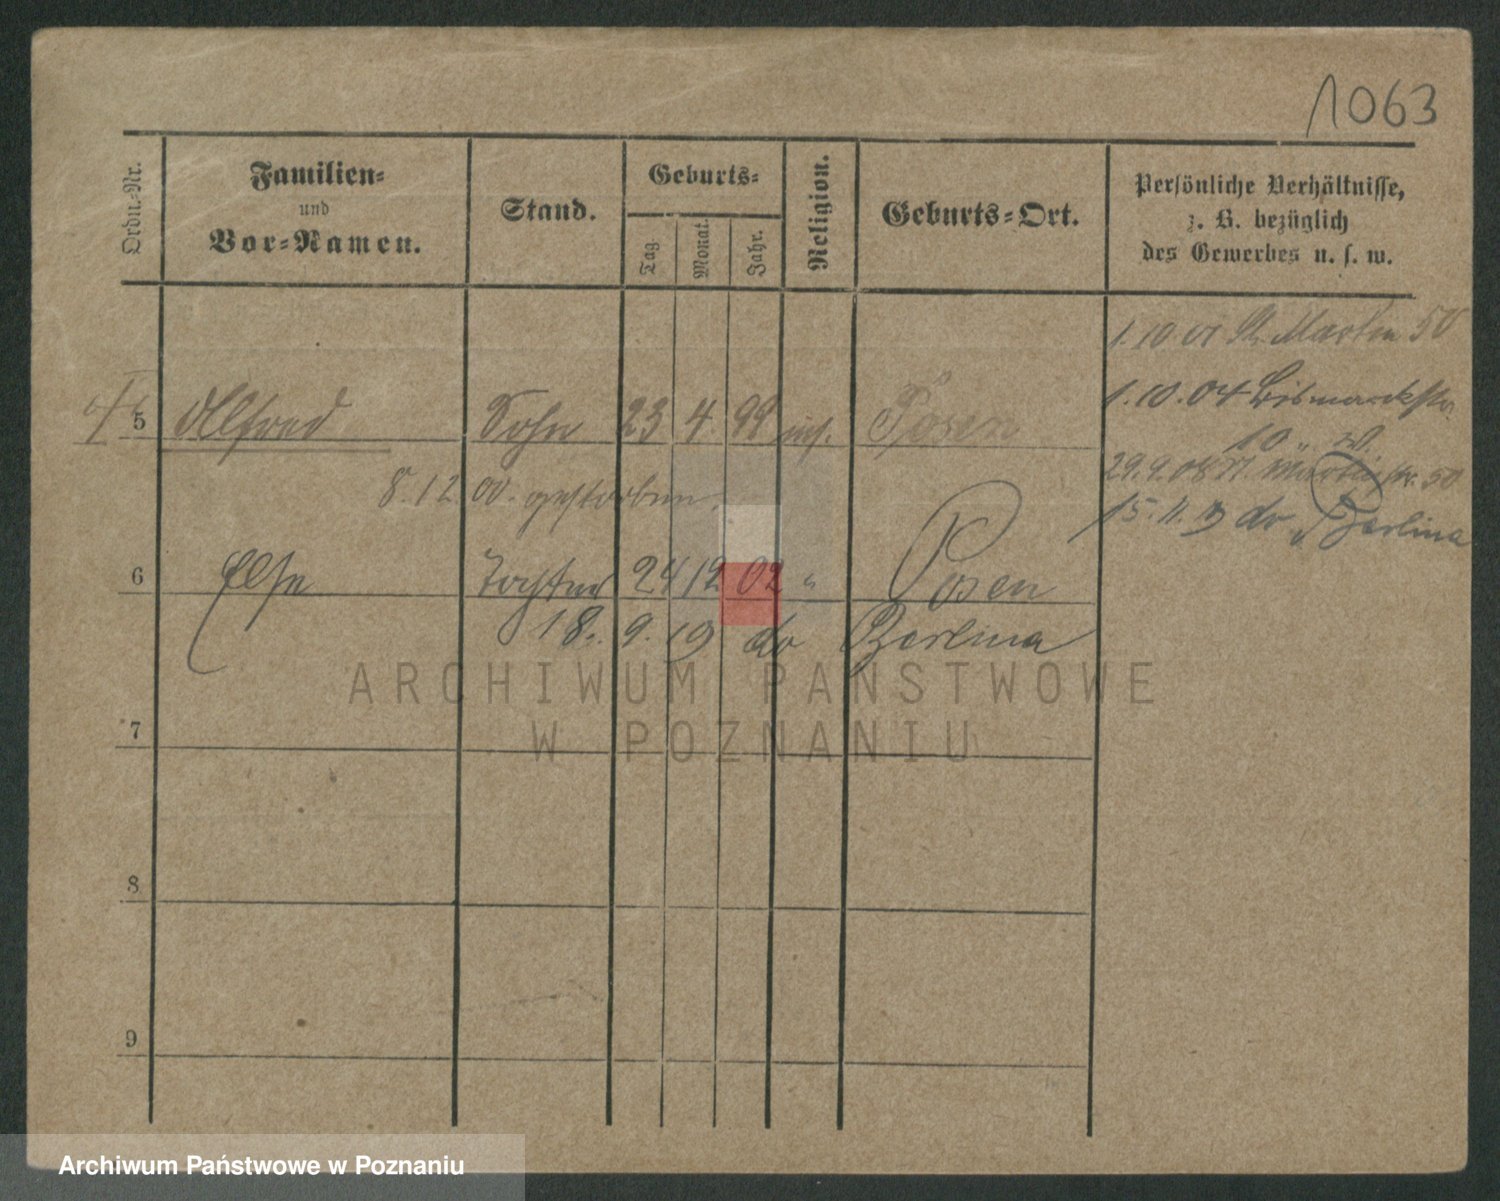 1063
Ordn.-Nr.
Familien-
und
Vor-Namen.
Stand.
Geburts-
Tag
Monat
Jahr.
Religion.
Geburts-Ort.
Persönliche Verhältnisse,
z. B. bezüglich
des Gewerbes u. s. w.
1.10 01 St. Martin 50
1.10.04 Bismarckstr.
10
29.9.08 St. Martinstr. 50
15.11.19 do Berlina
5 Alfred Sohn 23 4. 99 Posen
8.12 00. gestorben.
6 Else Tochter 24 12 02 " Posen
18. 9. 19 do Berlina
7
8
9
ARCHIWUM PAŃSTWOWE
W POZNANIU
Archiwum Państwowe w Poznaniu